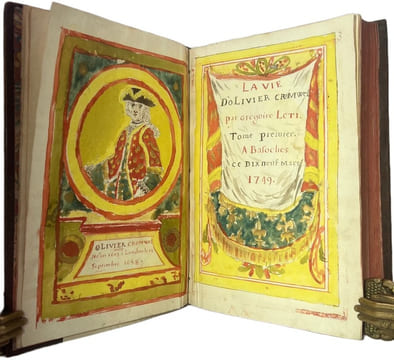 OLIVIER CROMWEL
Septembre 1658
3
LA VIE
D'OLIVIER CROMWEL
par Gregoire LETI.
Tome premier.
A Basoches
ce Dix neuf Mars
1749.